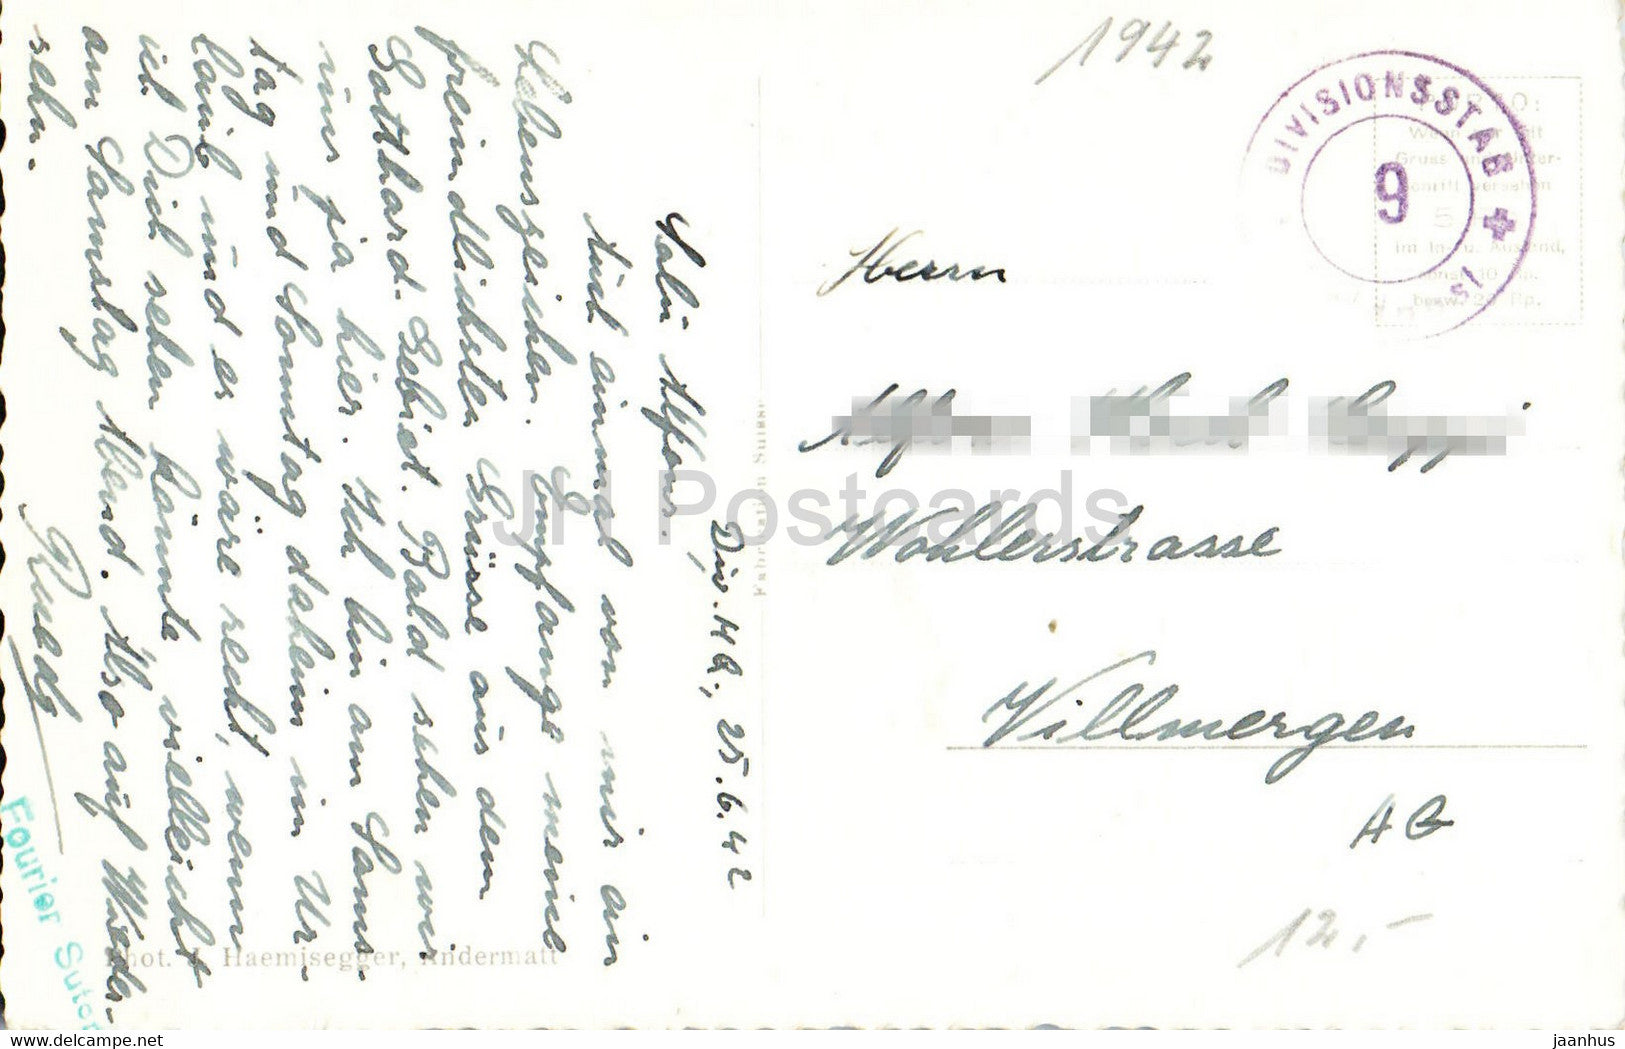 1942
DIVISIONSSTAB
9
Herrn
Wohlerstrasse
Villmergen
AG
12,-
Div. HQ., 25.6.42
Salü Alfons.
Auch einmal von mir ein
Lebenszeichen. Empfange meine
freundlichsten Grüsse aus dem
Gotthard-Gebiet. Bald sehen wir
uns ja hier. Ich bin am Sams-
tag und Sonntag daheim in Ur-
laub und es wäre recht, wenn
ich Dich sehen könnte vielleicht
am Samstag Abend. Also auf Wieder-
sehn.
Ruedy
Fourier Suter
Phot. J. Haemisegger, Andermatt
Fabrication Suisse
JH Postcards
jaanhus
www.delcampe.net